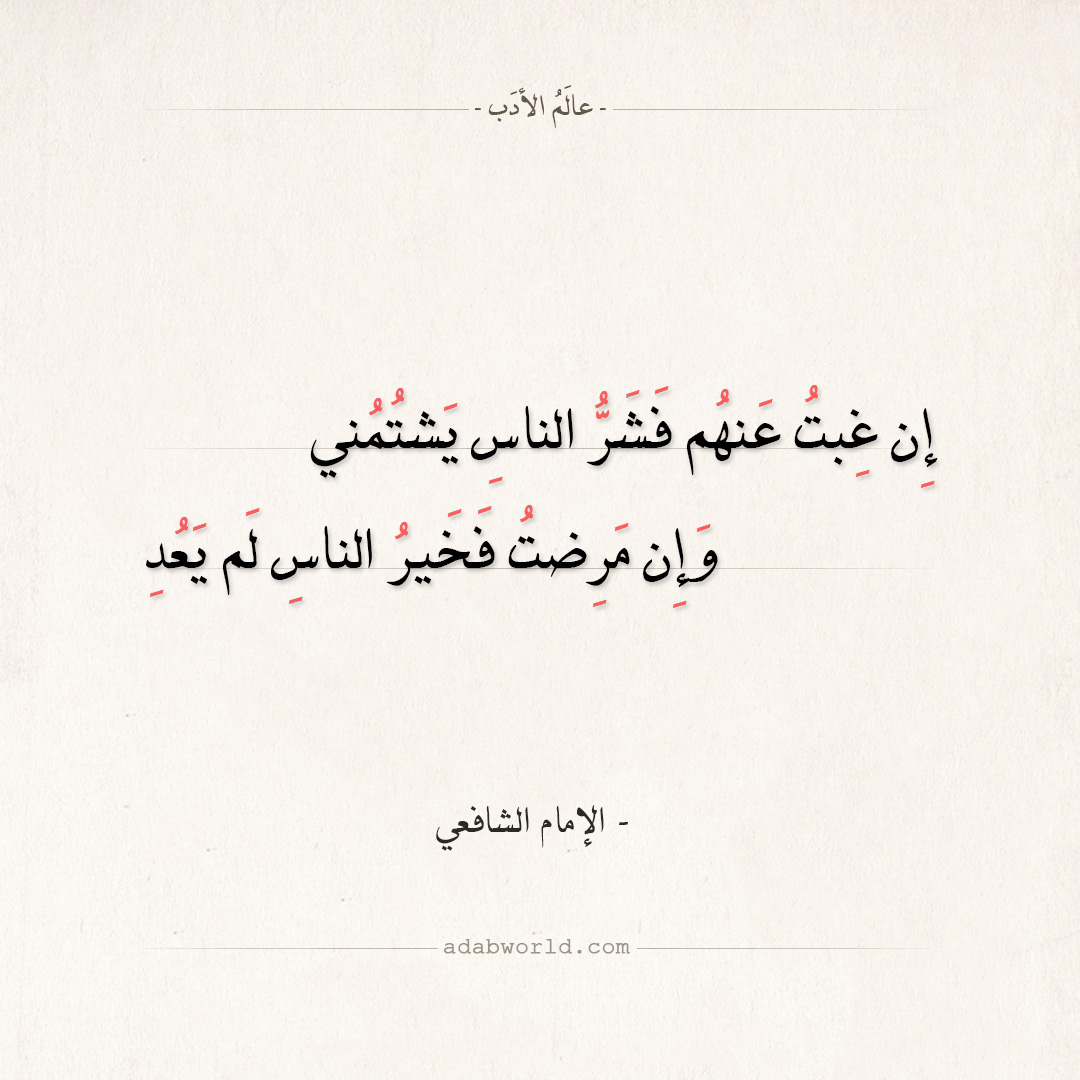 - عالَمُ الأدَب -
إِن غِبتُ عَنهُم فَشَرُّ الناسِ يَشتُمُني
وَإِن مَرِضتُ فَخَيرُ الناسِ لَم يَعُدِ
- الإمام الشافعي
adabworld.com